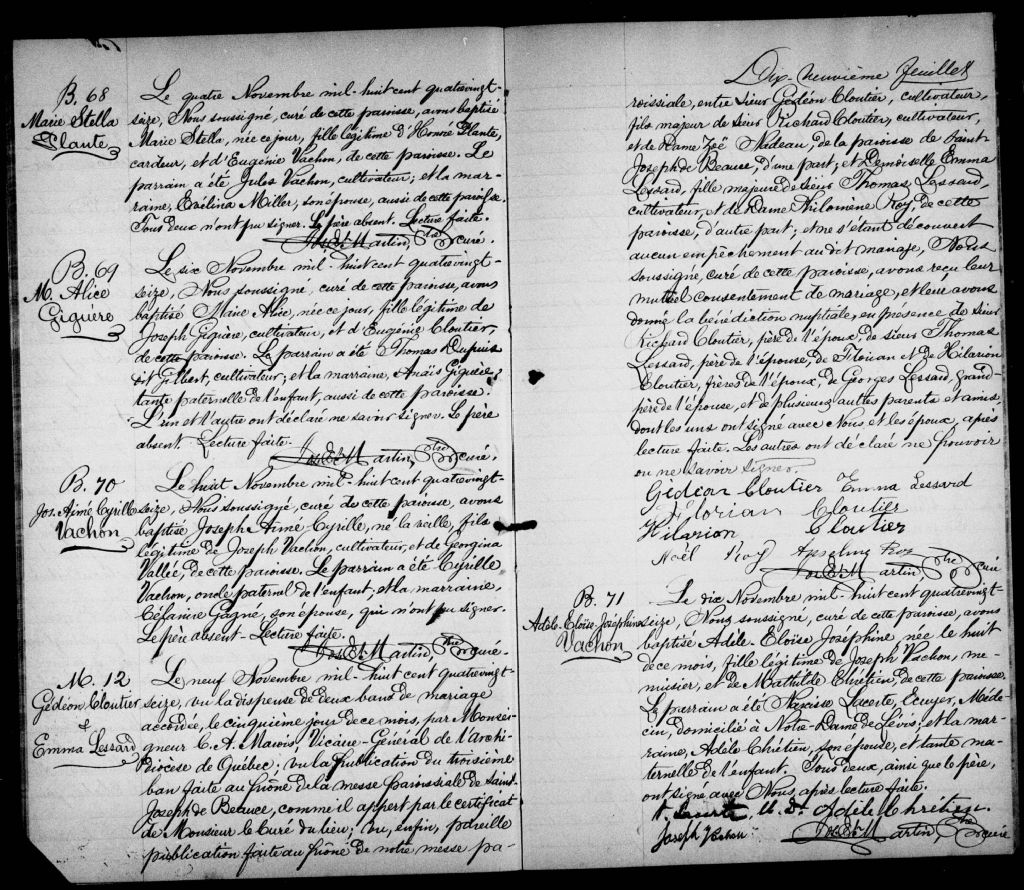 B. 68
Marie Stella
Plante
Le quatre Novembre mil-huit cent quatrevingt-
seize, Nous soussigné, curé de cette paroisse, avons baptisé
Marie Stella, née ce jour, fille légitime d'Honré Plante,
cardeur, et d'Eugénie Vachon, de cette paroisse. Le
parrain a été Jules Vachon, cultivateur; et la mar-
raine, Evélina Miller, son épouse, aussi de cette paroisse.
Tous deux n'ont pu signer. Le père absent. Lecture faite.
Martin, Ptre curé.
B. 69
M. Alice
Giguère
Le six Novembre mil-huit cent quatrevingt-
seize, Nous soussigné, curé de cette paroisse, avons
baptisé Marie Alice, née ce jour, fille légitime de
Joseph Giguère, cultivateur, et d'Eugénie Cloutier,
de cette paroisse. Le parrain a été Thomas Dupuis
dit Gilbert, cultivateur; et la marraine, Anaïs Giguère,
tante paternelle de l'enfant, aussi de cette paroisse.
L'un et l'autre ont déclaré ne savoir signer. Le père
absent Lecture faite.
Martin, Ptre curé.
B. 70
Jos. Aimé Cyrille
Vachon
Le huit Novembre mil-huit cent quatrevingt-
seize, Nous soussigné, curé de cette paroisse, avons
baptisé Joseph Aimé Cyrille, né la veille, fils
légitime de Joseph Vachon, cultivateur, et de Georgina
Vallée, de cette paroisse. Le parrain a été Cyrille
Vachon, oncle paternel de l'enfant; et la marraine,
Célanire Gagné, son épouse, qui n'ont pu signer.
Le père absent- Lecture faite.
Martin, Ptre curé.
M. 12
Gédéon Cloutier
&
Emma Lessard
Le neuf Novembre mil-huit cent quatrevingt-
seize, vu la dispense de deux bans de mariage
accordée, le cinquième jour de ce mois, par Monsei-
gneur C. A. Marois, Vicaire-Général de l'Archi-
diocèse de Québec: vu la publication du troisième
ban faite au prône de la messe paroissiale de Saint-
Joseph de Beauce, comme il appert par le certificat
de Monsieur le Curé du lieu; vu, enfin, pareille
publication faite au prône de notre messe pa-
Dix-neuvième feuillet
roissiale, entre Sieur Gédéon Cloutier, cultivateur,
fils majeur de Sieur Richard Cloutier, cultivateur,
et de Dame Zoé Nadeau, de la paroisse de Saint
Joseph de Beauce, d'une part; et Demoiselle Emma
Lessard, fille majeure de sieur Thomas Lessard,
cultivateur, et de Dame Philomène Roy, de cette
paroisse, d'autre part; et ne s'étant découvert
aucun empêchement au dit mariage, Nous
soussigné, curé de cette paroisse, avons reçu leur
mutuel consentement de mariage, et leur avons
donné la bénédiction nuptiale, en présence de Sieur
Richard Cloutier, père de l'époux, de sieur Thomas
Lessard, père de l'épouse, de Florian et de Hilarion
Cloutier, frères de l'époux, de Georges Lessard, grand-
père de l'épouse, et de plusieurs autres parents et amis,
dont les uns ont signé avec Nous, et les époux, après
lecture faite. Les autres ont déclaré ne pouvoir
ou ne savoir signer.
Gédéon Cloutier Emma Lessard
Florian Cloutier
Hilarion Cloutier
Noël Roy Anselme Roy
Martin, Ptre Curé
B. 71
Adèle-Eloïse-Joséphine
Vachon
Le dix Novembre mil-huit cent quatrevingt
seize, Nous soussigné, curé de cette paroisse, avons
baptisé Adèle-Eloïse Joséphine née le huit
de ce mois, fille légitime de Joseph Vachon, me-
nuisier, et de Mathilde Chrétien, de cette paroisse.
Le parrain a été Narcisse Lacerte, Ecuyer, Méde-
cin, domicilié à Notre-Dame de Lévis: et la mar-
raine, Adèle Chrétien, son épouse, et tante ma-
ternelle de l'enfant. Tous deux, ainsi que le père,
ont signé avec Nous, après lecture faite.
N. Lacerte, M. D. Adèle Chrétien.
Joseph Vachon Martin, Ptre curé